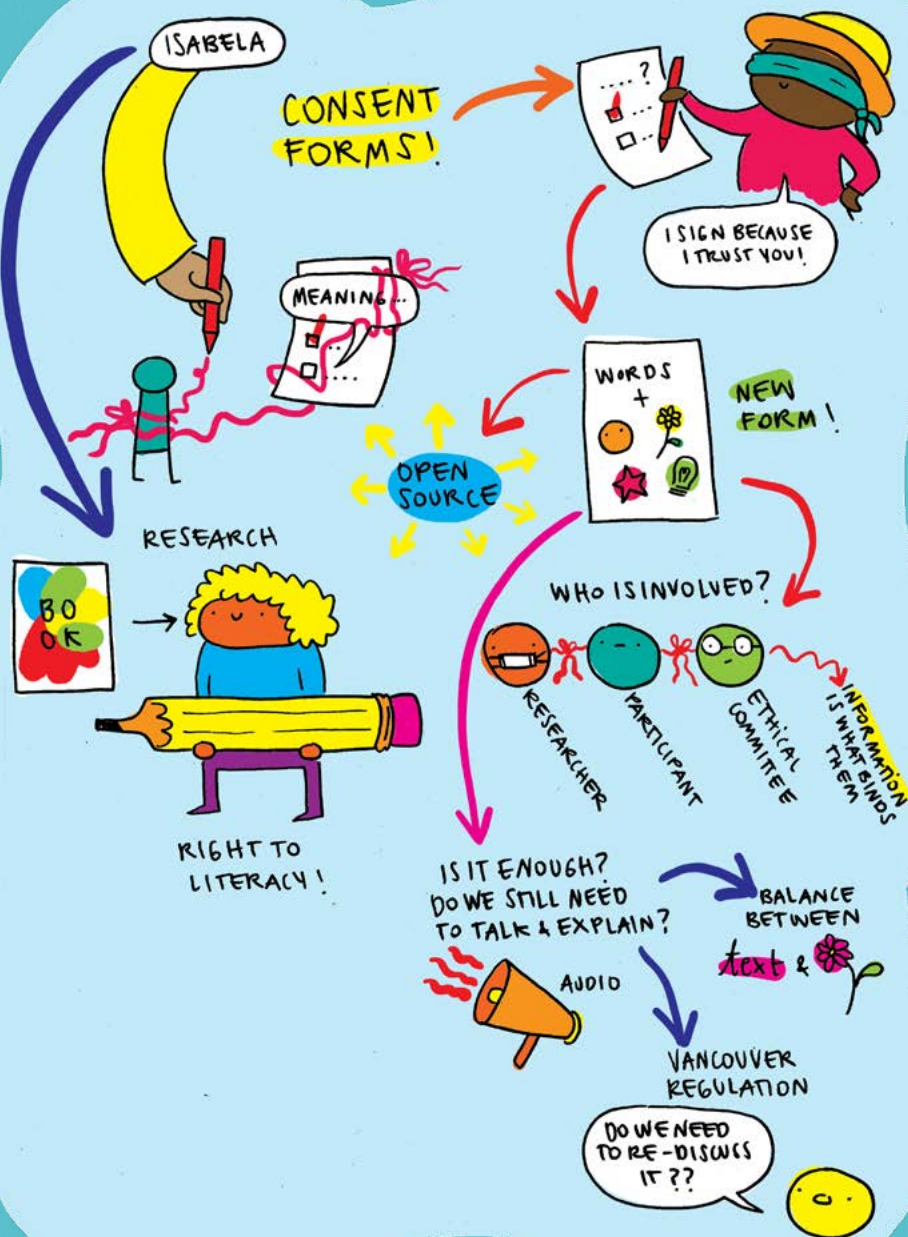 ISABELA
CONSENT
FORMS!
.... ?
...
...
I SIGN BECAUSE
I TRUST YOU!
MEANING...
...
.....
WORDS
+
NEW
FORM!
OPEN
SOURCE
RESEARCH
BO
OK
RIGHT TO
LITERACY!
WHO IS INVOLVED?
RESEARCHER
PARTICIPANT
ETHICAL
COMMITTEE
INFORMATION
IS WHAT BINDS
THEM
IS IT ENOUGH?
DO WE STILL NEED
TO TALK & EXPLAIN?
AUDIO
BALANCE
BETWEEN
text &
VANCOUVER
REGULATION
DO WE NEED
TO RE-DISCUSS
IT??